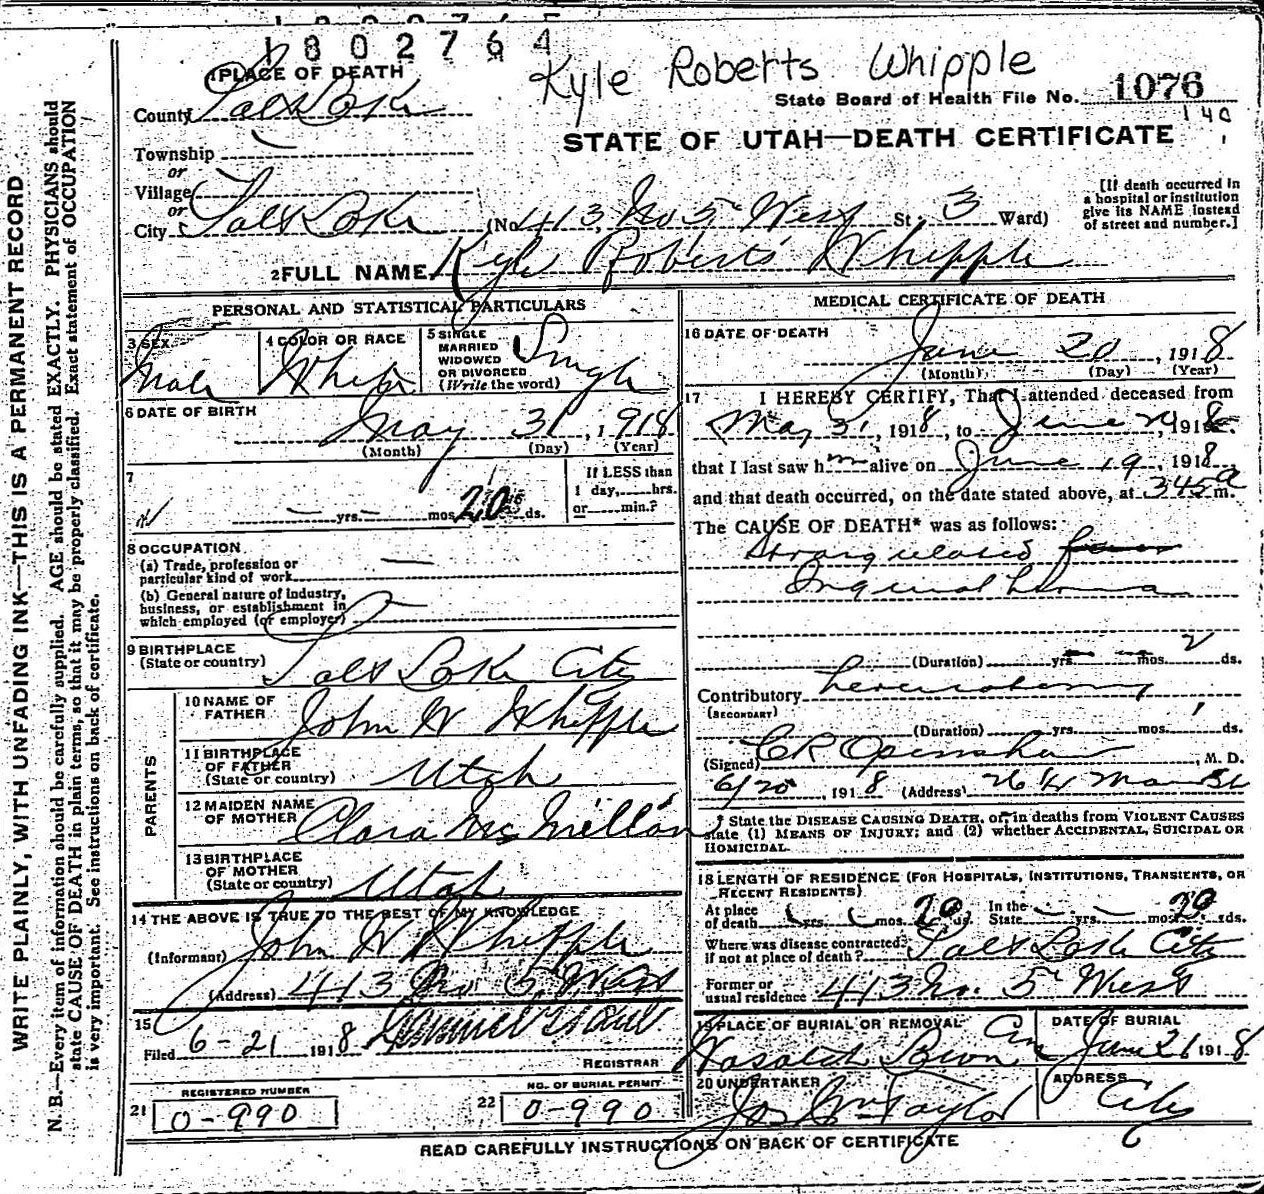 1802764
Kyle Roberts Whipple
1 PLACE OF DEATH
State Board of Health File No. 1076
140
County Salt Lake
STATE OF UTAH—DEATH CERTIFICATE
Township
or
Village
or
City Salt Lake (No 413, No 5th West St., 3 Ward)
[If death occurred in a hospital or institution give its NAME instead of street and number.]
2 FULL NAME Kyle Roberts Whipple
PERSONAL AND STATISTICAL PARTICULARS
3 SEX Male
4 COLOR OR RACE White
5 SINGLE MARRIED WIDOWED OR DIVORCED (Write the word) Single
6 DATE OF BIRTH May 31, 1918
(Month) (Day) (Year)
7 — yrs. — mos. 20 ds.
If LESS than 1 day, hrs. or min.?
8 OCCUPATION
(a) Trade, profession or particular kind of work —
(b) General nature of industry, business, or establishment in which employed (or employer) —
9 BIRTHPLACE (State or country) Salt Lake City
PARENTS
10 NAME OF FATHER John W Whipple
11 BIRTHPLACE OF FATHER (State or country) Utah
12 MAIDEN NAME OF MOTHER Clara McMillan
13 BIRTHPLACE OF MOTHER (State or country) Utah
14 THE ABOVE IS TRUE TO THE BEST OF MY KNOWLEDGE
(Informant) John W Whipple
(Address) 413 No 5 West
15 Filed 6-21 1918
REGISTRAR
REGISTERED NUMBER
21 0-990
NO. OF BURIAL PERMIT
22 0-990
MEDICAL CERTIFICATE OF DEATH
16 DATE OF DEATH June 20, 1918
(Month) (Day) (Year)
17 I HEREBY CERTIFY, That I attended deceased from
May 31, 1918, to June 20 1918.
that I last saw h m alive on June 19, 1918
and that death occurred, on the date stated above, at 345 a m.
The CAUSE OF DEATH* was as follows:
Strangulated
Inguinal hernia
(Duration) — yrs. — mos. 2 ds.
Contributory herniotomy
(SECONDARY)
(Duration) yrs. mos. 1 ds.
(Signed) CR Openshaw, M. D.
6/20, 1918 (Address) Main St
* State the DISEASE CAUSING DEATH, or, in deaths from VIOLENT CAUSES
state (1) MEANS OF INJURY; and (2) whether ACCIDENTAL, SUICIDAL OR
HOMICIDAL.
18 LENGTH OF RESIDENCE (FOR HOSPITALS, INSTITUTIONS, TRANSIENTS, OR RECENT RESIDENTS)
At place of death yrs. mos. 20 ds. In the State — yrs. — mos. 20 ds.
Where was disease contracted, if not at place of death? Salt Lake City
Former or usual residence 413 No. 5th West
19 PLACE OF BURIAL OR REMOVAL Wasatch Lawn Cem
DATE OF BURIAL June 21 1918
20 UNDERTAKER Jos Wm Taylor
ADDRESS City
READ CAREFULLY INSTRUCTIONS ON BACK OF CERTIFICATE
WRITE PLAINLY, WITH UNFADING INK—THIS IS A PERMANENT RECORD
N. B.—Every item of information should be carefully supplied. AGE should be stated EXACTLY. PHYSICIANS should
state CAUSE OF DEATH in plain terms, so that it may be properly classified. Exact statement of OCCUPATION
is very important. See instructions on back of certificate.